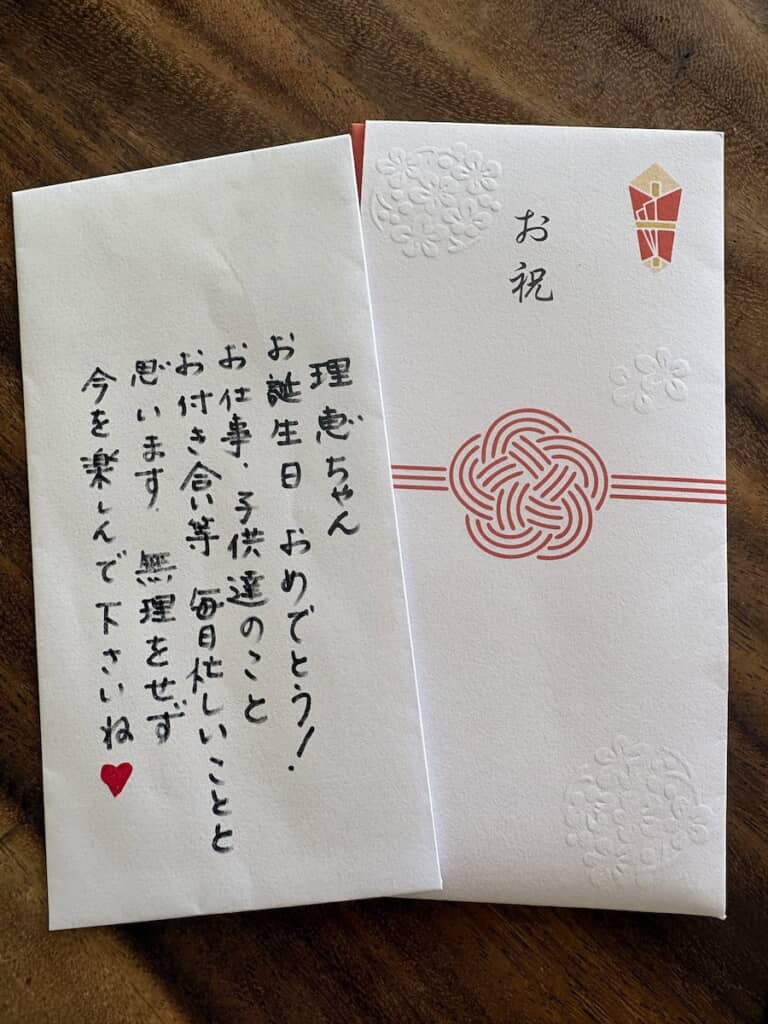 理恵ちゃん
お誕生日 おめでとう!
お仕事、子供達のこと
お付き合い等 毎日忙しいことと
思います. 無理をせず
今を楽しんで下さいね♥
お祝